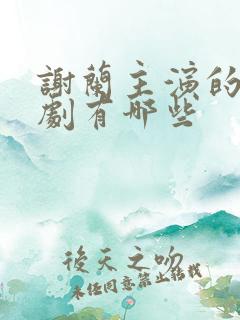 謝蘭主演的
劇有哪些
後天之吻
未任同意禁止轉載